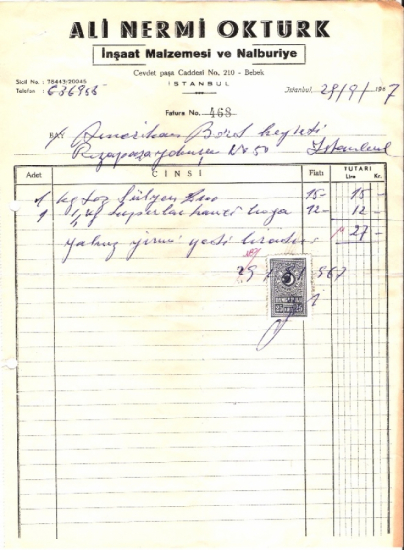 ALİ NERMİ OKTÜRK
İnşaat Malzemesi ve Nalburiye
Cevdet paşa Caddesi No. 210 - Bebek
İSTANBUL
Sicil No. : 78443/20045
Telefon : 636955
İstanbul, 29/9/1967
Fatura No. 468
BAY Amerikan Bord heyeti
Rızapaşa yokuşu No 50 İstanbul
Adet CİNSİ Fiatı TUTARI
Lira Kr.
1 kg toz 15- 15-
1 1/4 12- 12-
yalnız yirmi yedi liradır 27-
29 967